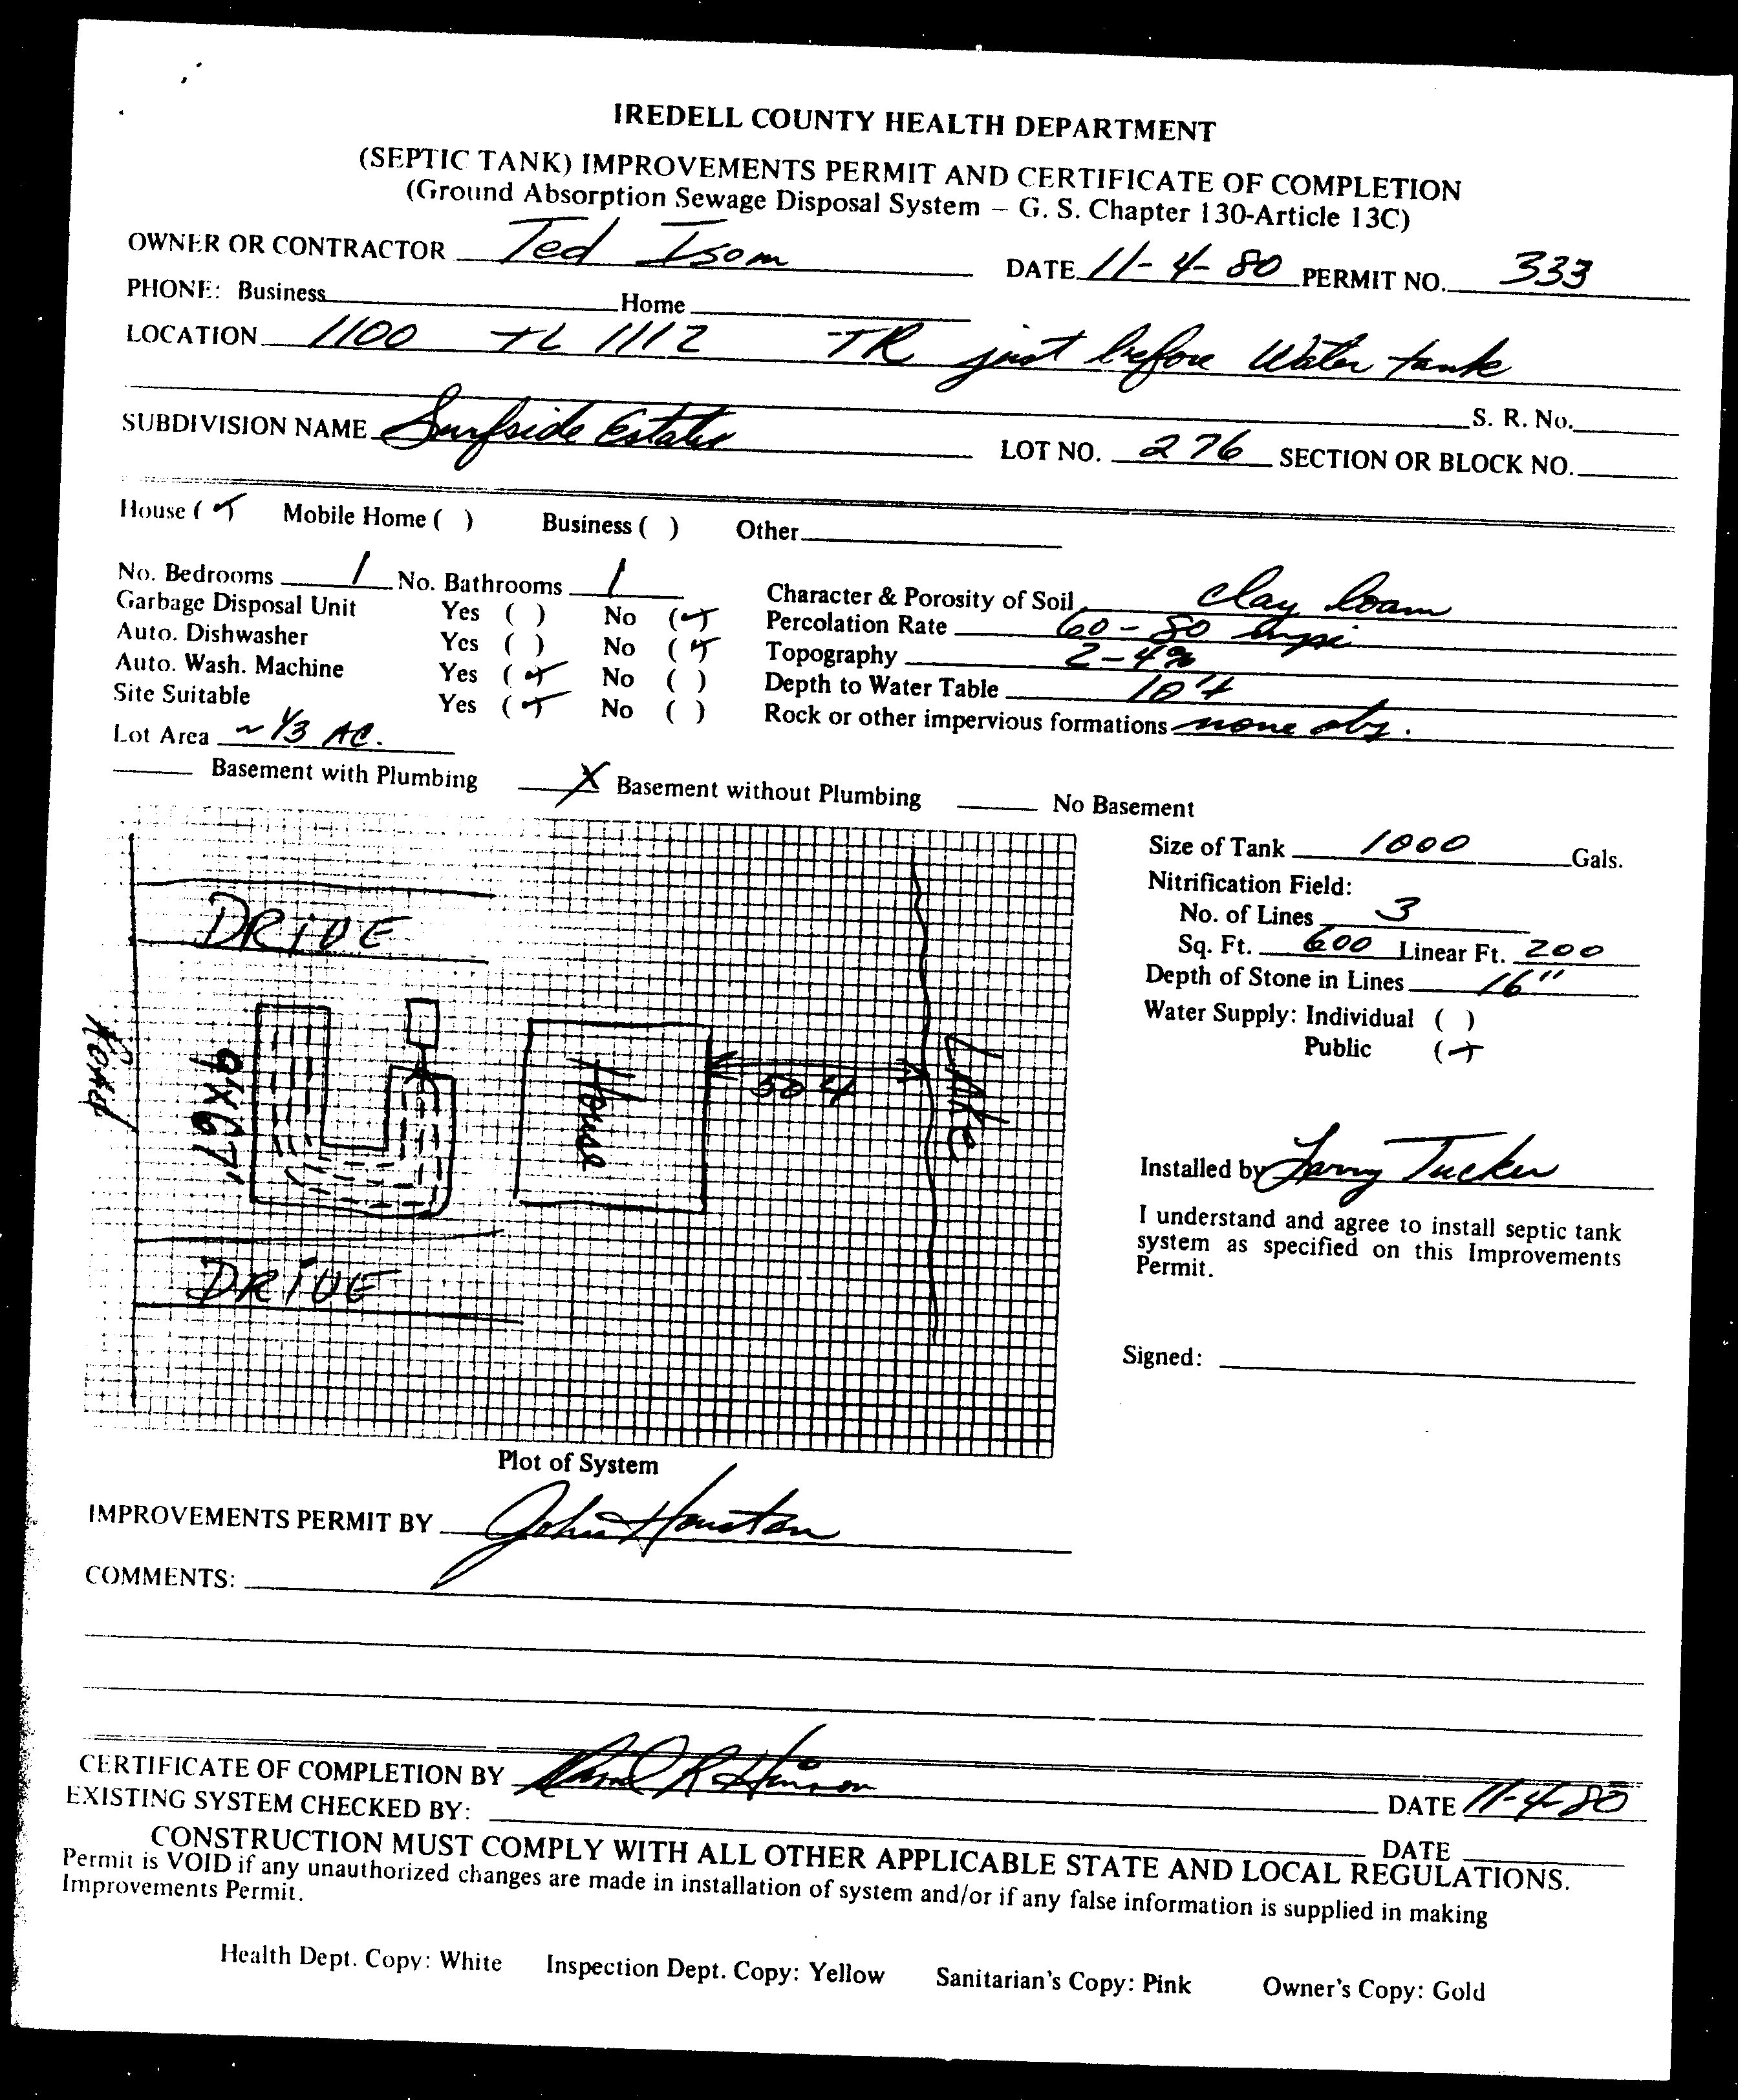 IREDELL COUNTY HEALTH DEPARTMENT
(SEPTIC TANK) IMPROVEMENTS PERMIT AND CERTIFICATE OF COMPLETION
(Ground Absorption Sewage Disposal System – G. S. Chapter 130-Article 13C)
OWNER OR CONTRACTOR Ted Isom DATE 11-4-80 PERMIT NO. 333
PHONE: Business Home
LOCATION 1100 TL 1112 TR just before Water tank
S. R. No.
SUBDIVISION NAME Surfside Estates LOT NO. 276 SECTION OR BLOCK NO.
House ( ) Mobile Home ( ) Business ( ) Other
No. Bedrooms 1 No. Bathrooms 1 Character & Porosity of Soil clay loam
Garbage Disposal Unit Yes ( ) No ( ) Percolation Rate 60-80 mpi
Auto. Dishwasher Yes ( ) No ( ) Topography 2-4%
Auto. Wash. Machine Yes ( ) No ( ) Depth to Water Table 10'+
Site Suitable Yes ( ) No ( ) Rock or other impervious formations none obs.
Lot Area ~ 1/3 AC.
Basement with Plumbing X Basement without Plumbing No Basement
Size of Tank 1000 Gals.
Nitrification Field:
No. of Lines 3
Sq. Ft. 600 Linear Ft. 200
Depth of Stone in Lines 16"
Water Supply: Individual ( )
Public ( )
DRIVE
Road
9'X67'
House
50
LAKE
DRIVE
Installed by Larry Tucker
I understand and agree to install septic tank
system as specified on this Improvements
Permit.
Signed:
Plot of System
IMPROVEMENTS PERMIT BY John Houston
COMMENTS:
CERTIFICATE OF COMPLETION BY R Hinson DATE 11-4-80
EXISTING SYSTEM CHECKED BY: DATE
CONSTRUCTION MUST COMPLY WITH ALL OTHER APPLICABLE STATE AND LOCAL REGULATIONS.
Permit is VOID if any unauthorized changes are made in installation of system and/or if any false information is supplied in making
Improvements Permit.
Health Dept. Copy: White Inspection Dept. Copy: Yellow Sanitarian's Copy: Pink Owner's Copy: Gold